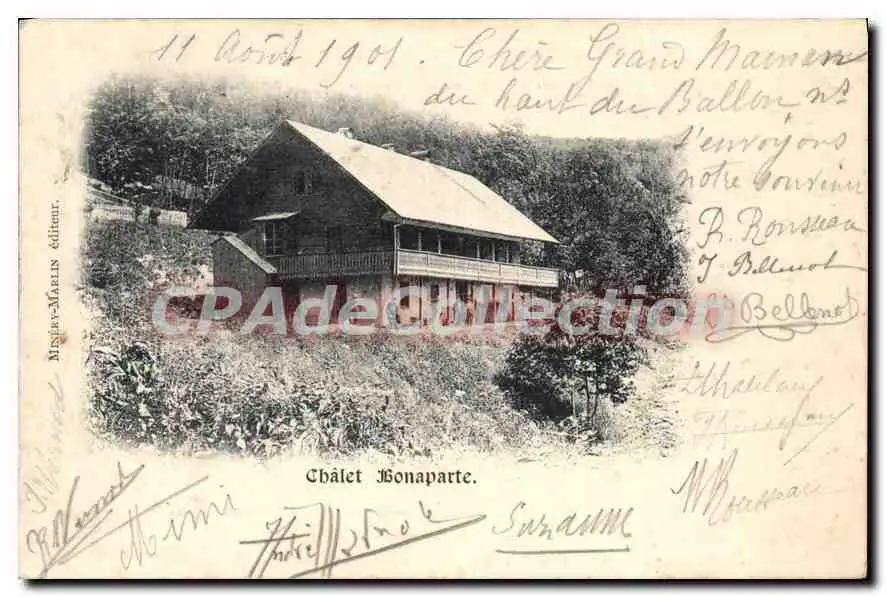 11 Août 1901. Chère Grand Maman
du haut du Ballon ns
t'envoyons
notre souvenir
R. Rousseau
J Bellenot
Bellenot
CPA de Collection.com
MINÉRY-MARLIN éditeur.
Châlet Bonaparte.
Rousseau
Mimi
André
Suzanne